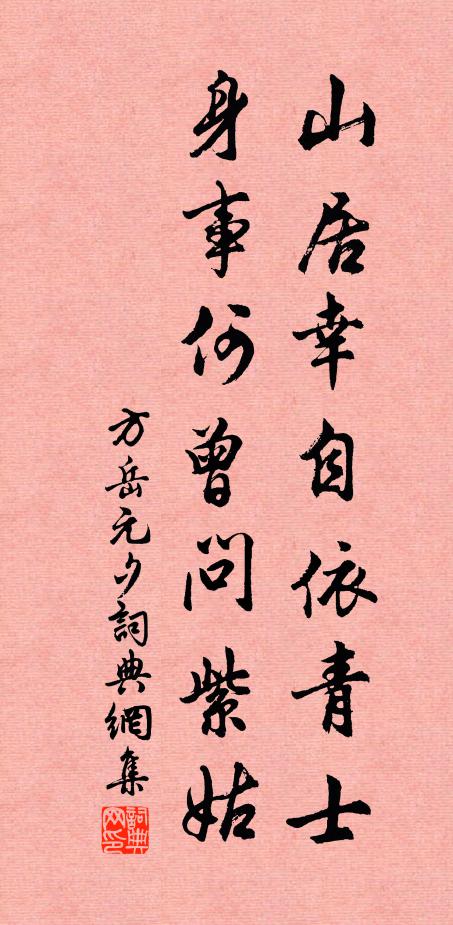 山居幸自依青士
身事何曾問紫姑
方岳元夕詞典網集
詞典网印